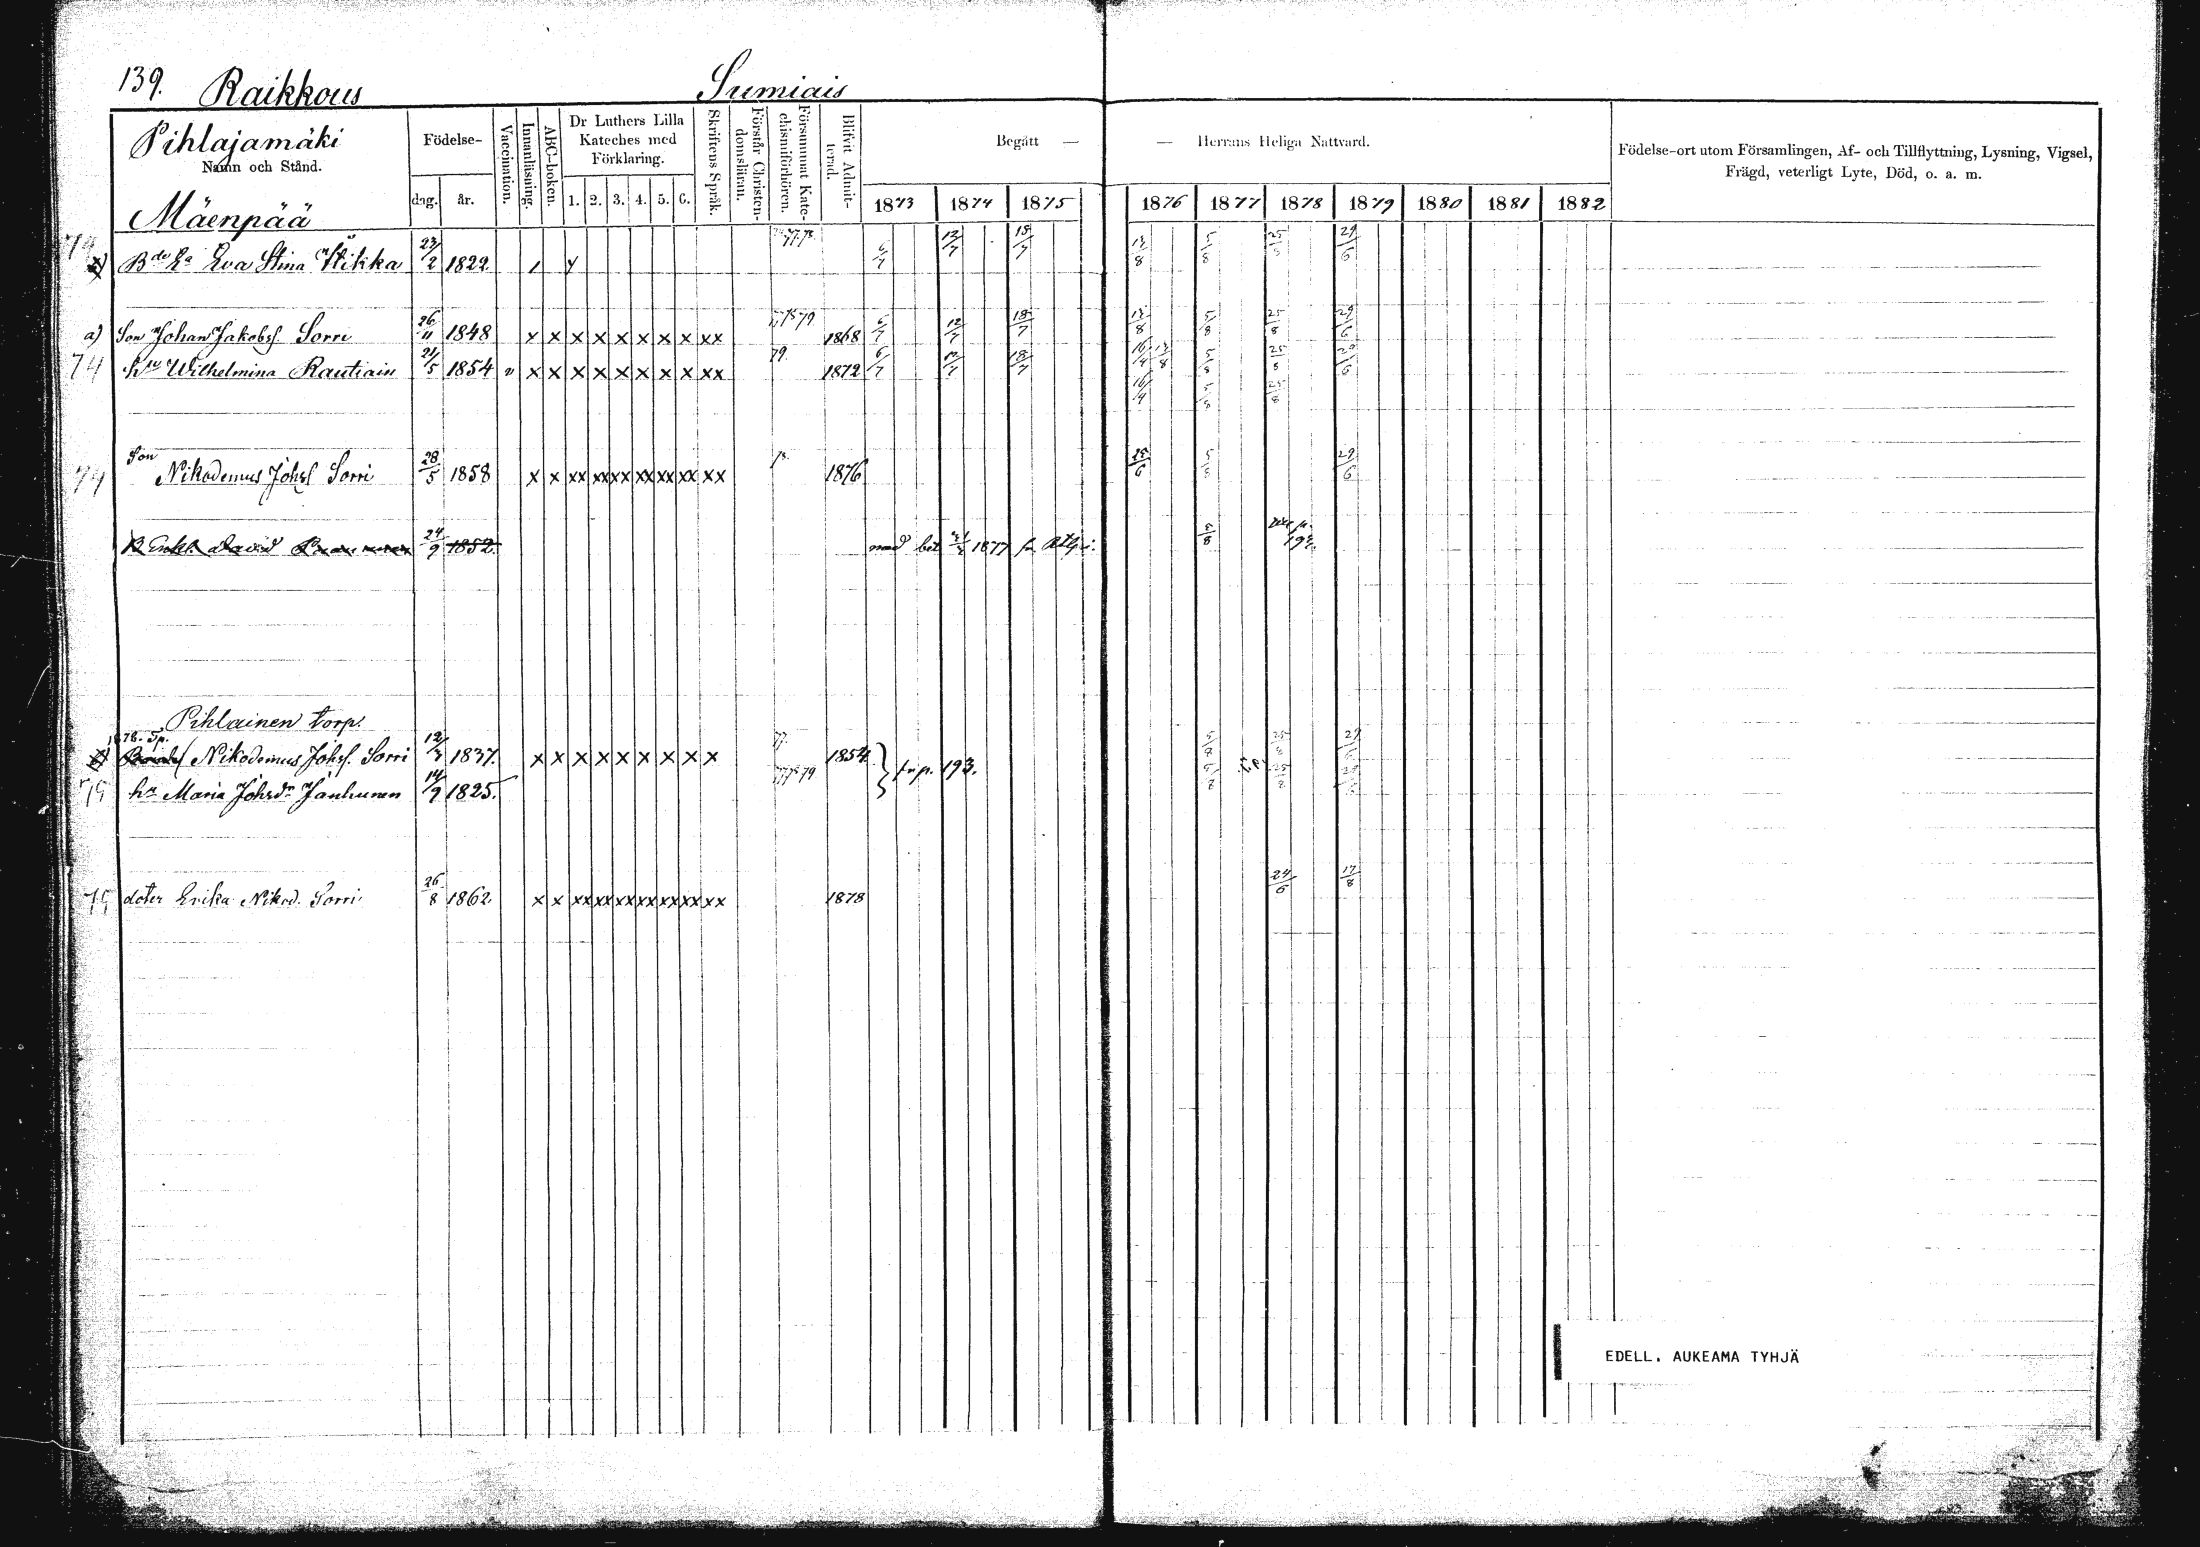 139. Raikkous Sumiais
Pihlajamäki
Namn och Stånd.
Mäenpää
Födelse-
dag. år.
Vaccination.
Innanläsning.
ABC-boken.
Dr Luthers Lilla
Kateches med
Förklaring.
1. 2. 3. 4. 5. 6.
Skriftens Språk.
Förstår Christen-
domsläran.
Försummat Kate-
chismiförhören.
Blifvit Admit-
terad.
Begått — — Herrans Heliga Nattvard.
1873 1874 1875 1876 1877 1878 1879 1880 1881 1882
Födelse-ort utom Församlingen, Af- och Tillflyttning, Lysning, Vigsel,
Frägd, veterligt Lyte, Död, o. a. m.
Eva Stina 23/2 1822 6/7 12/7 18/7 5/8 29/6
a) Son Johan Jakobss. Sorri 26/11 1848 x x x x x x x x xx 1868 6/7 12/7 18/7 5/8 25/8 29/6
74 hu Wilhelmina Rautiain 21/5 1854 v x x x x x x x x xx 79. 1872 6/7 12/7 18/7 5/8 25/8 29/6
16/4 5/8 25/8
Son
74 Nikodemus Johss Sorri 28/5 1858 x x xx xx xx xx xx xx xx 1876 25/6 5/8 29/6
David 24/9 1852. 1877 5/8
Pihlainen torp.
1878. Sp.
Nikodemus Johss. Sorri 12/3 1837. x x x x x x x x x 77. 1854 5/8 25/8 29/6
hu Maria Johsdr Janhunen 14/9 1825. 193.
doter Erika Nikod. Sorri 26/8 1862 x x xx xx xx xx xx xx xx 1878 24/6 17/8
EDELL. AUKEAMA TYHJÄ